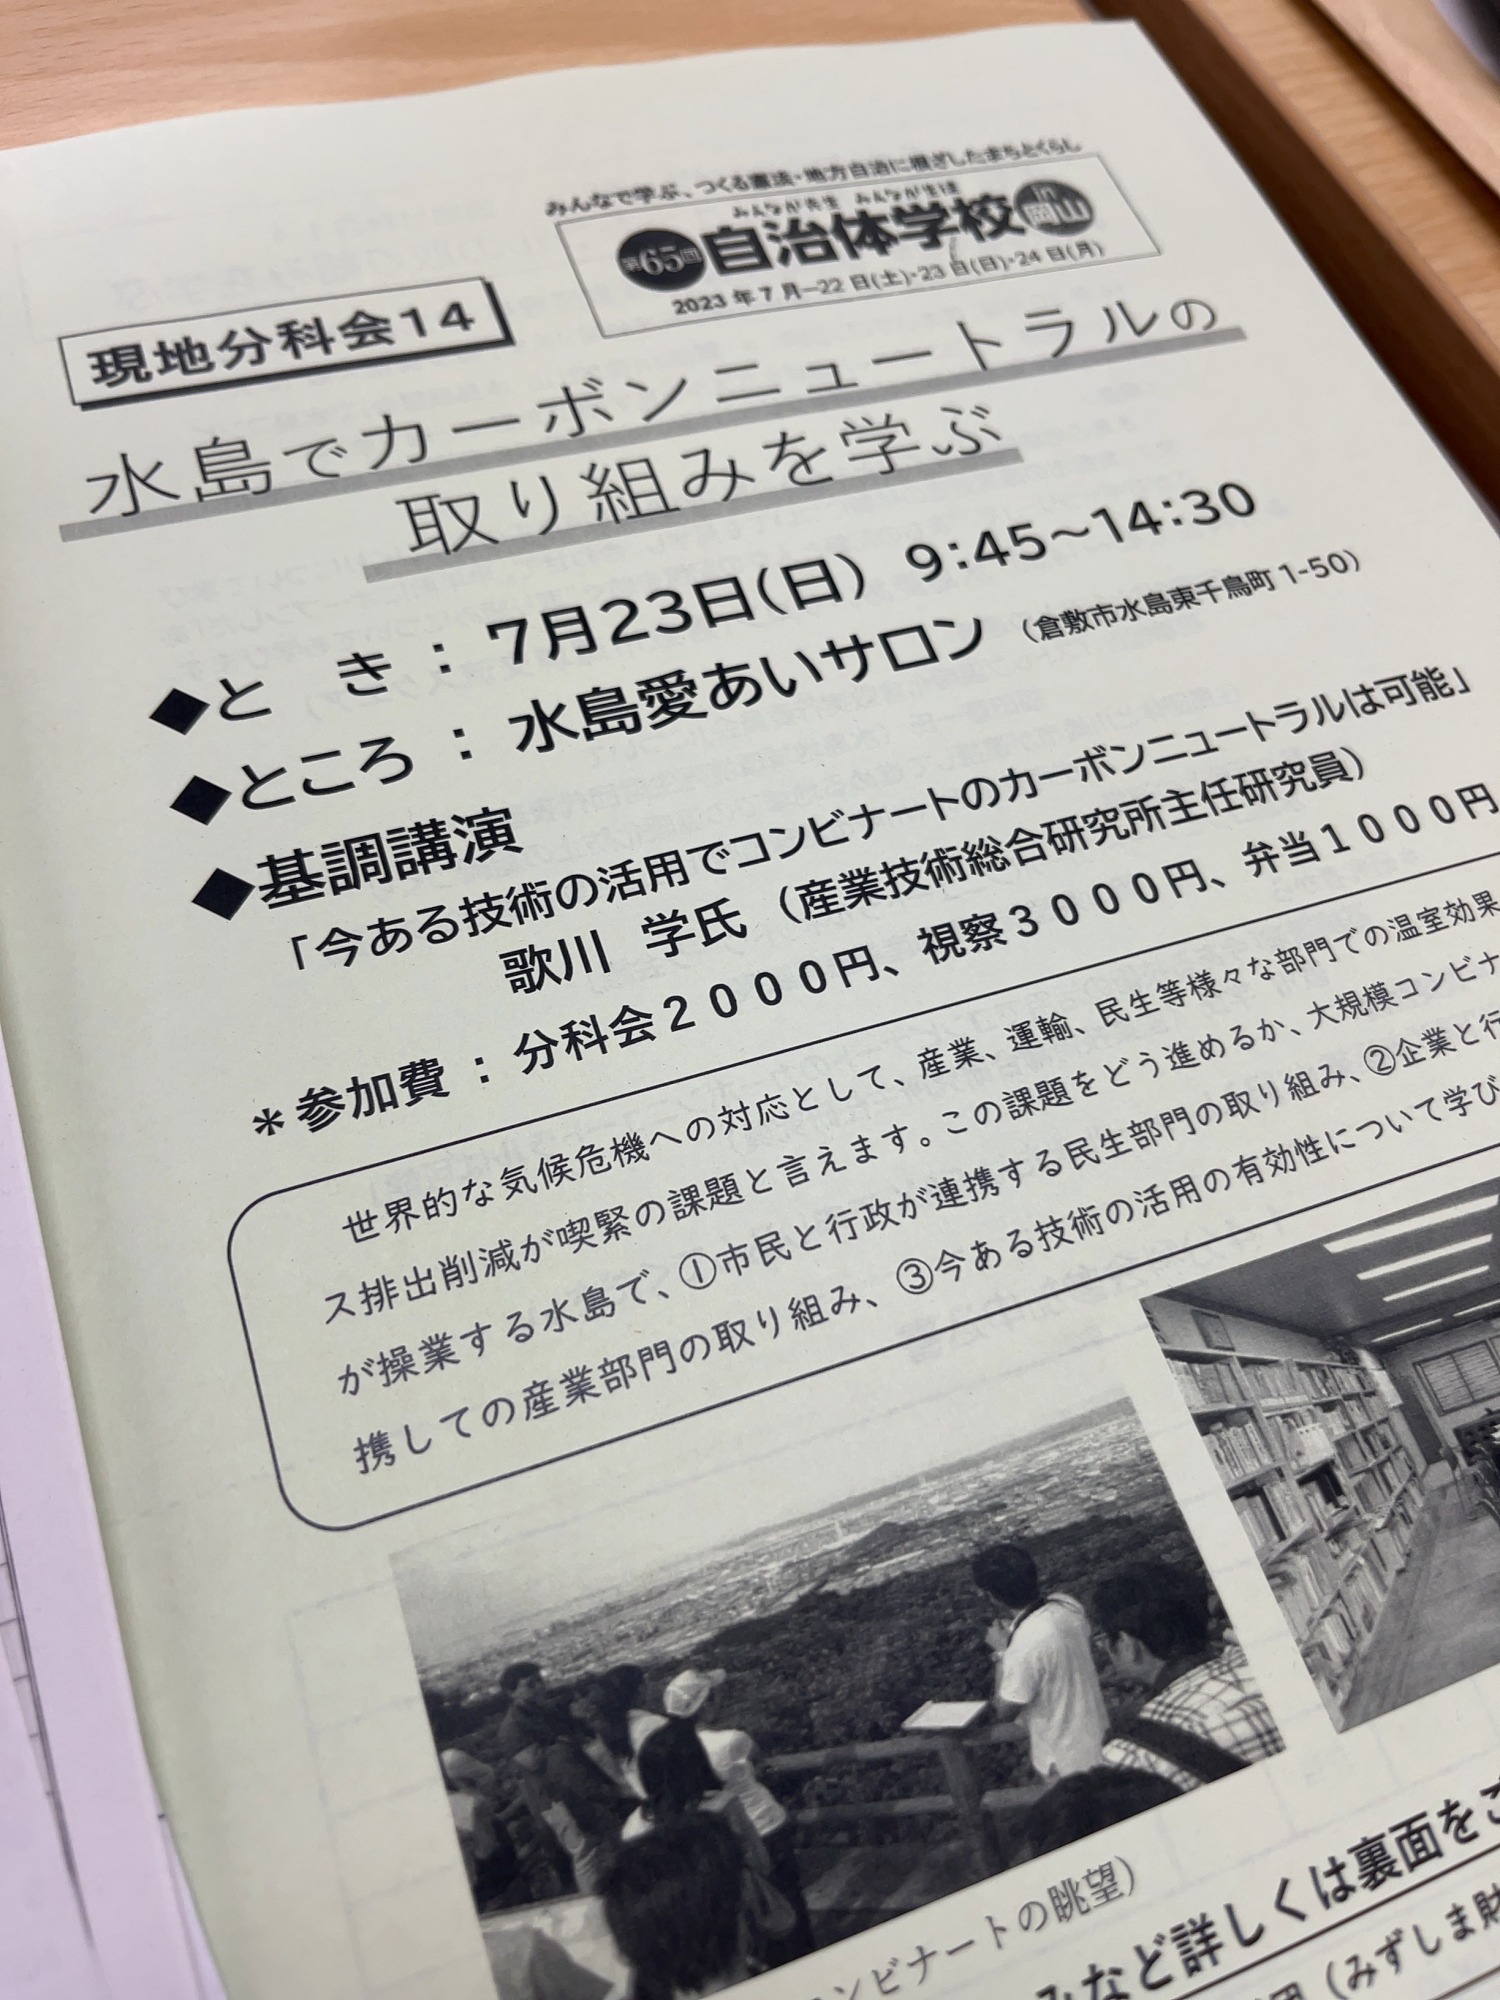 みんなで学ぶ、つくる憲法・地方自治に根ざしたまちとくらし
みんなが先生 みんなが生徒
第65回自治体学校in岡山
2023年7月―22日(土)・23日(日)・24日(月)
現地分科会14
水島でカーボンニュートラルの
取り組みを学ぶ
◆と き：7月23日(日) 9:45～14:30
◆ところ：水島愛あいサロン（倉敷市水島東千鳥町1-50）
◆基調講演
「今ある技術の活用でコンビナートのカーボンニュートラルは可能」
歌川 学氏（産業技術総合研究所主任研究員）
＊参加費：分科会２０００円、視察３０００円、弁当１０００円
世界的な気候危機への対応として、産業、運輸、民生等様々な部門での温室効果
ス排出削減が喫緊の課題と言えます。この課題をどう進めるか、大規模コンビナ
が操業する水島で、①市民と行政が連携する民生部門の取り組み、②企業と行
携しての産業部門の取り組み、③今ある技術の活用の有効性について学び
ンビナートの眺望）
みなど詳しくは裏面をご
団（みずしま財